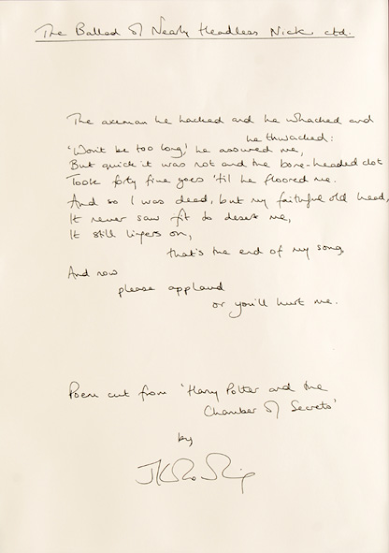 The Ballad of Nearly Headless Nick ctd.
The axeman he hacked and he whacked and
he thwacked:
'Won't be too long', he assured me,
But quick it was not and the bone-headed clot
Took forty five goes 'til he floored me.
And so I was dead, but my faithful old head,
It never saw fit to desert me,
It still lingers on,
that's the end of my song,
And now
please applaud
or you'll hurt me.
Poem cut from 'Harry Potter and the
Chamber of Secrets'
by
JK Rowling